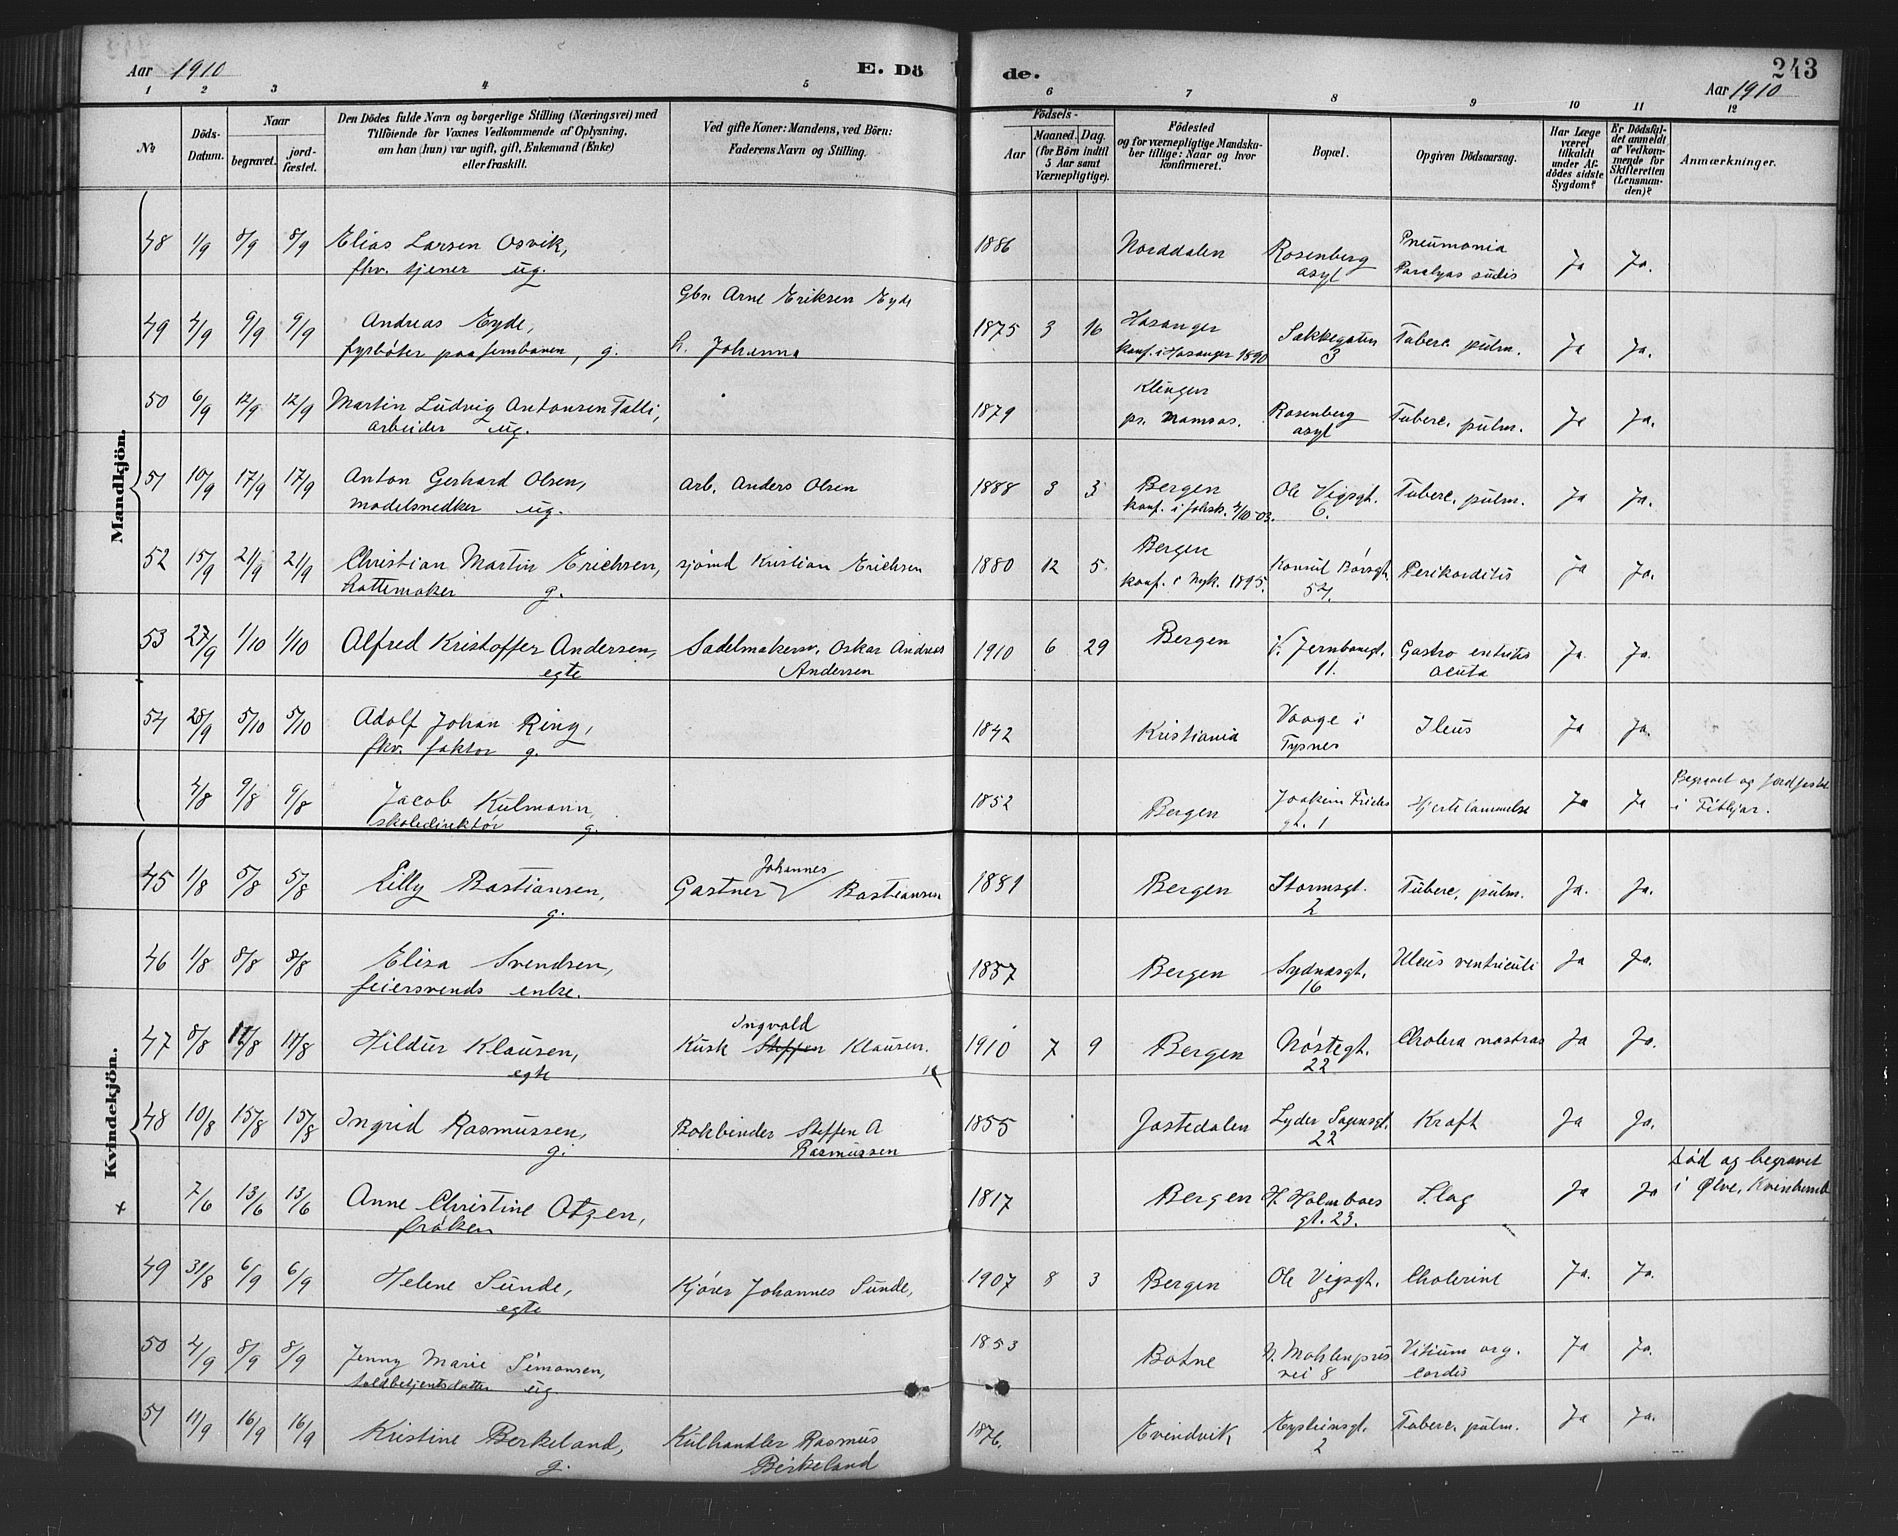 Aar 1910
E. Dö
de.
243
Aar 1910
1 2 3 4 5 6 7 8 9 10 11 12
No
Döds-Datum.
Naar
begravet.
jord-fæstet.
Den Dödes fulde Navn og borgerlige Stilling (Næringsvei) med
Tilföiende for Voxnes Vedkommende af Oplysning,
om han (hun) var ugift, gift, Enkemand (Enke)
eller fraskilt.
Ved gifte Koner: Mandens, ved Börn:
Faderens Navn og Stilling.
Födsels-
Aar
Maaned. Dag.
(for Börn indtil
5 Aar samt
Værnepligtige).
Födested
og for værnepligtige Mandska-
ber tillige: Naar og hvor
konfirmeret.
Bopæl.
Opgiven Dödsaarsag.
Har Læge
været
tilkaldt
under Af-
dödes sidste
Sygdom?
Er Dödsfal-
det anmeldt
af Vedkom-
mende for
Skifteretten
(Lensman-
den)?
Anmærkninger.
Mandkjön.
48 1/9 8/9 8/9 Elias Larsen Osvik, 1886 Norddalen Rosenberg Pneumonia Ja Ja.
fhv. tjener ug. asyl
Gbr. Arne Eriksen Eyde
49 4/9 9/9 9/9 Andreas Eyde, 1875 3 16 Hosanger Sækkegaten Tuberc. pulm. Ja Ja.
fyrbøter paa jernbanen, g. h. Johanna konf. i Hosanger 1890 3
50 6/9 12/9 12/9 Martin Ludvig Antonsen Talli, 1879 Klingen Rosenberg Tuberc. pulm. Ja Ja.
arbeider ug. pr. Namsos. asyl
51 10/9 17/9 17/9 Anton Gerhard Olsen, Arb. Anders Olsen 1888 3 3 Bergen Ole Vigsgt. Tuberc. pulm. Ja Ja.
modelsnedker ug. konf. i Johsk. 6.
52 15/9 21/9 21/9 Christian Martin Erichsen, sjömd Kristian Erichsen 1880 12 5 Bergen Konsul Børsgt. Perikarditis Ja Ja.
hattemaker g. konf. i Nyk. 1895.
53 27/9 1/10 1/10 Alfred Kristoffer Andersen, Sadelmakersv. Oskar Andreas 1910 6 29 Bergen Jernbanegt. Gastro entritis Ja Ja.
egte Andersen 11. acuta
54 28/9 5/10 5/10 Adolf Johan Ring, 1842 Kristiania Vaage i Ileus Ja Ja.
fhv. faktor g. Tysnes
4/8 9/8 9/8 Jacob Kulmann, 1852 Bergen Joakim Frieles Hjertelammelse Ja Ja Begravet og jordfæstet
skoledirektør g. gt. 1 i Fitjar.
Kvindekjön.
45 1/8 5/8 5/8 Lilly Bastiansen, Gartner Johannes Bastiansen 1881 Bergen Stormsgt. Tuberc. pulm. Ja. Ja.
g. 2
46 1/8 8/8 8/8 Elisa Svendsen, 1857 Bergen Sydnæsgt. Ulcus ventriculi Ja Ja.
feiersvends enke. 16
47 8/8 11/8 11/8 Hildur Klausen, Kusk Steffen Ingvald Klausen. 1910 7 9 Bergen Nøstegt. Cholera nostras Ja Ja.
egte 22
48 10/8 15/8 15/8 Ingrid Rasmussen, Bokbinder Steffen A 1855 Jostedalen Lyder Sagensgt. Kræft Ja Ja.
g. Rasmussen 22
x 7/6 13/6 13/6 Anne Christine Otzen, 1817 Bergen H. Holmboes Slag Ja Ja Død og begravet
frøken gt. 23. i Ølve, Kvinherred
49 31/8 6/9 6/9 Helene Sunde, Kjører Johannes Sunde, 1907 8 3 Bergen Ole Vigsgt. Cholerine Ja. Ja.
egte 8
50 4/9 8/9 8/9 Jenny Marie Simonsen, 1853 Botne N. Møhlenpris Vitium org. Ja Ja.
toldbetjentsdatter ug vei 8 cordis
51 11/9 16/9 16/9 Kristine Berkeland, Kulhandler Rasmus 1876. Evindvik Eysteinsgt. Tuberc. pulm. Ja Ja.
g. Birkeland 2